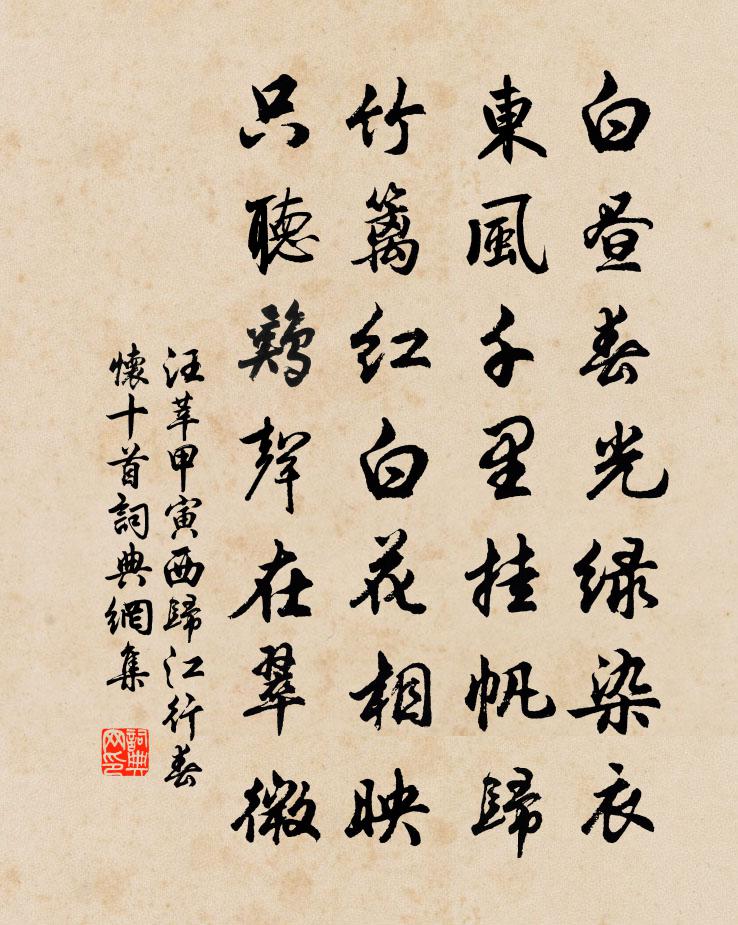 白昼春光緑染衣
東風千里挂帆歸
竹籬紅白花相映
只聽鷄聲在翠微
汪莘甲寅西歸江行春
懷十首詞典網集
詞典網印